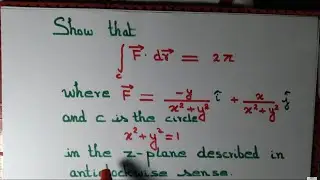 Show that
∫_c F⃗ · dr⃗ = 2π
where F⃗ = -y/(x²+y²) î + x/(x²+y²) ĵ
and c is the circle
x²+y²=1
in the z-plane described in
anticlockwise sense.